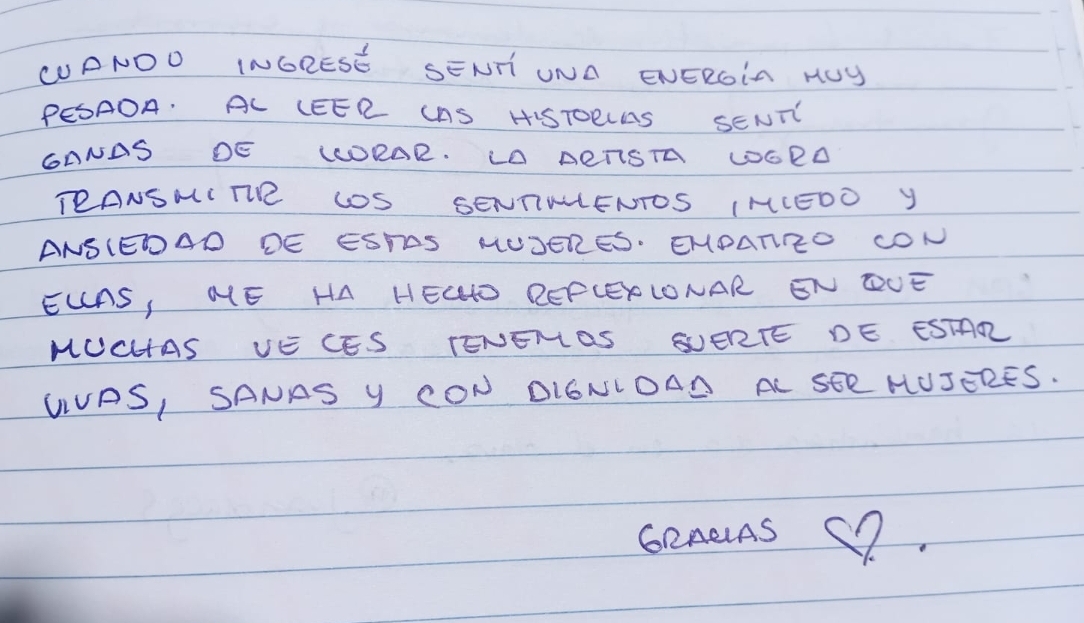 CUANDO INGRESÉ SENTÍ UNA ENERGÍA MUY
PESADA. AL LEER LAS HISTORIAS SENTÍ
GANAS DE LLORAR. LA ARTISTA LOGRA
TRANSMITIR LOS SENTIMIENTOS, MIEDO Y
ANSIEDAD DE ESTAS MUJERES. EMPATIZO CON
ELLAS, ME HA HECHO REFLEXIONAR EN QUE
MUCHAS VECES TENEMOS SUERTE DE ESTAR
VIVAS, SANAS Y CON DIGNIDAD AL SER MUJERES.
GRACIAS ♡.